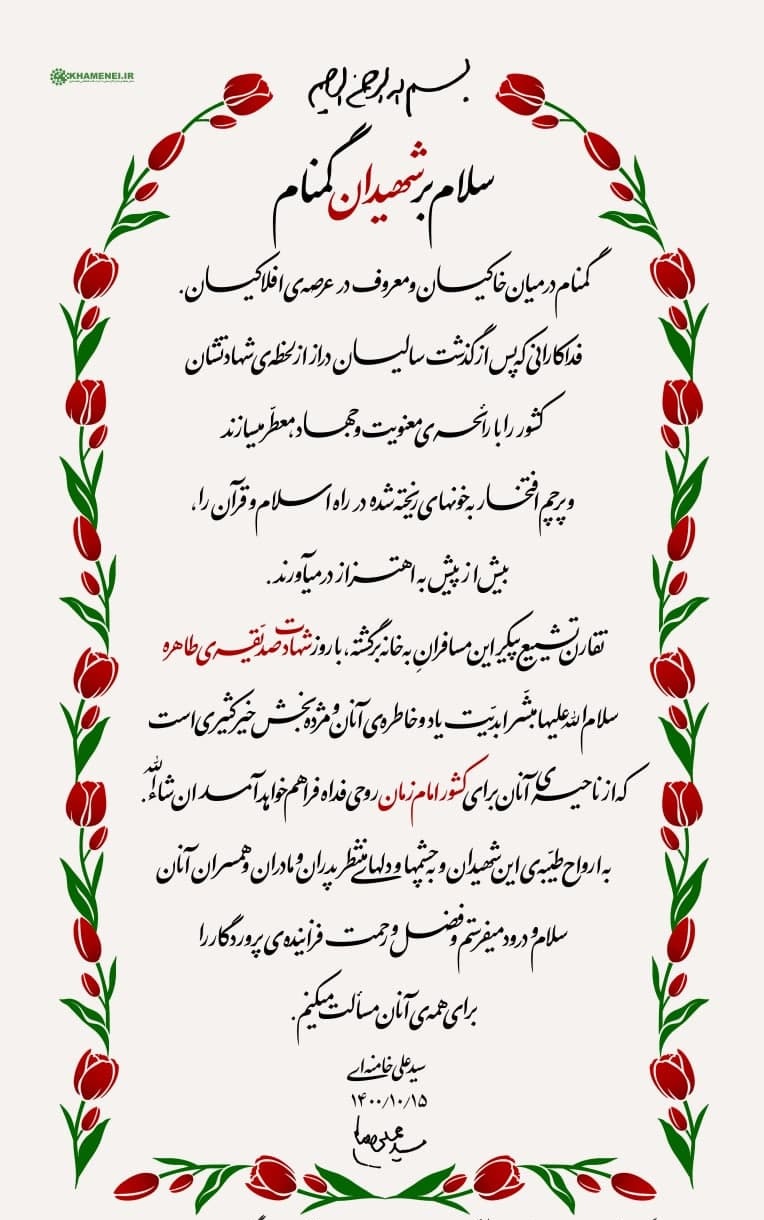 KHAMENEI.IR
بسم الله الرحمن الرحیم
سلام بر شهیدان گمنام
گمنام در میان خاکیان و معروف در عرصه‌ی افلاکیان.
فداکارانی که پس از گذشت سالیان دراز از لحظه‌ی شهادتشان
کشور را با رائحه‌ی معنویت و جهاد، معطّر میسازند
و پرچم افتخار به خونهای ریخته شده در راه اسلام و قرآن را،
بیش از پیش به اهتزاز درمیآورند.
تقارن تشییع پیکر این مسافرانِ به خانه برگشته، با روز شهادت صدّیقه‌ی طاهره
سلام‌الله‌علیها مبشّر ابدیّت یاد و خاطره‌ی آنان و مژده‌بخش خیر کثیری است
که از ناحیه‌ی آنان برای کشور امام زمان روحی فداه فراهم خواهد آمد ان‌شاءالله.
به ارواح طیّبه‌ی این شهیدان و به چشمها و دلهای منتظر پدران و مادران و همسران آنان
سلام و درود میفرستم و فضل و رحمت فزاینده‌ی پروردگار را
برای همه‌ی آنان مسألت میکنم.
سید علی خامنه‌ای
۱۴۰۰/۱۰/۱۵